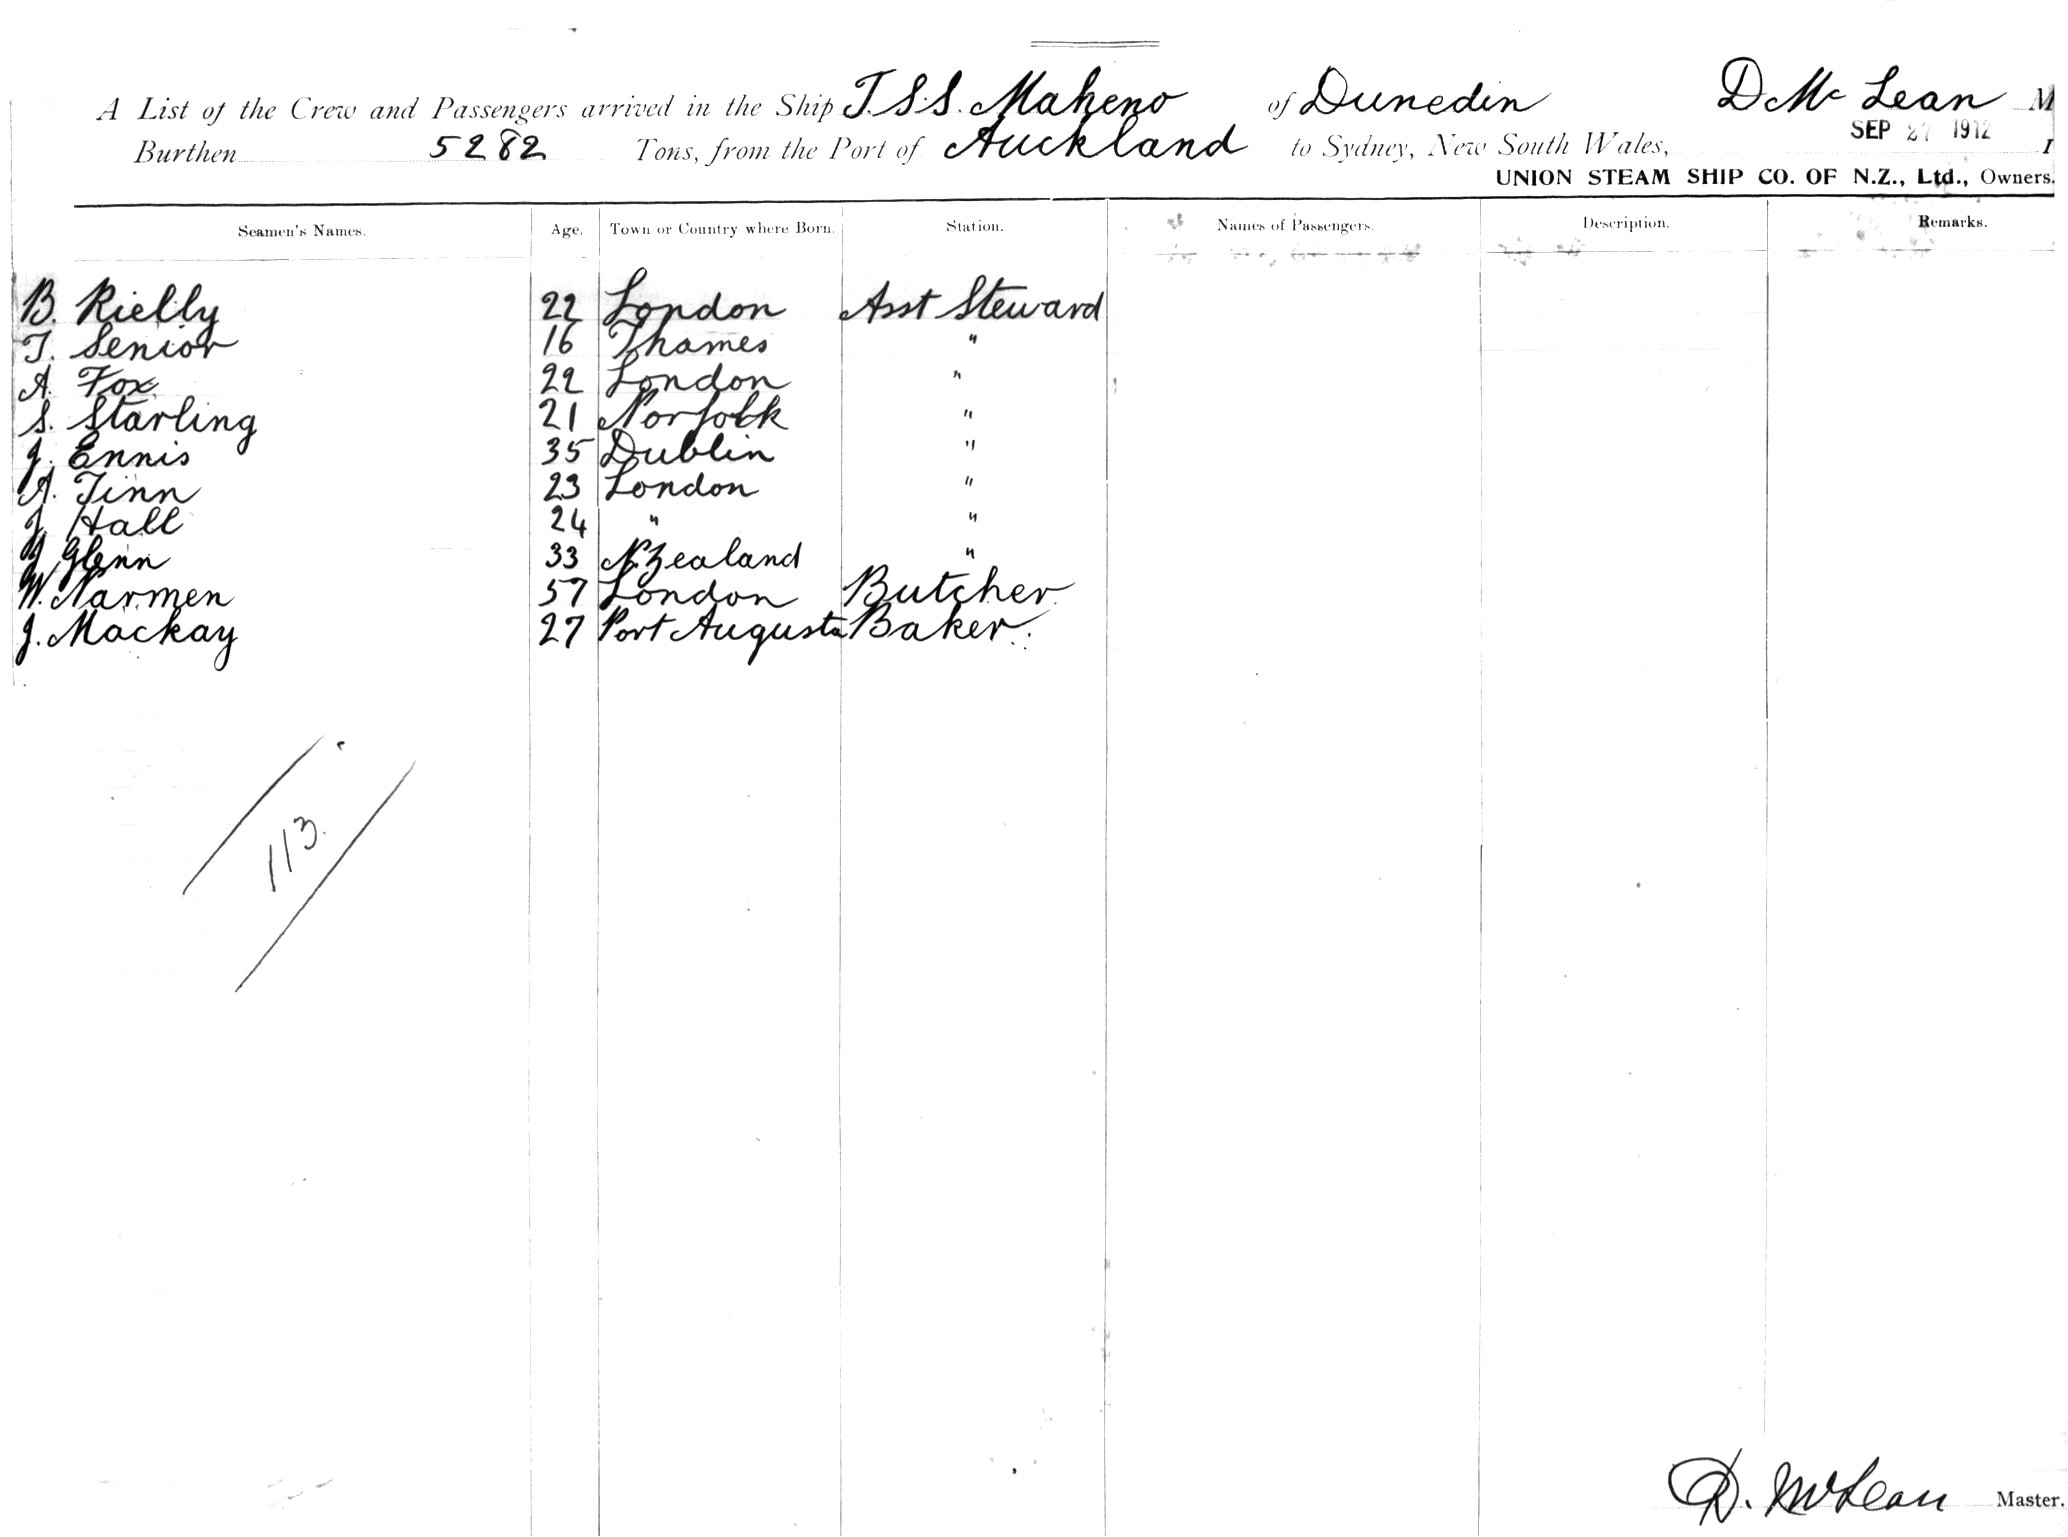 A List of the Crew and Passengers arrived in the Ship T.S.S. Maheno of Dunedin D Mc Lean M
Burthen 5282 Tons, from the Port of Auckland to Sydney, New South Wales, SEP 27 1912
UNION STEAM SHIP CO. OF N.Z., Ltd., Owners.
Seamen's Names. Age. Town or Country where Born. Station. Names of Passengers. Description. Remarks.
B. Rielly 22 London Asst Steward
T. Senior 16 Thames "
A. Fox 22 London "
S. Starling 21 Norfolk "
J. Ennis 35 Dublin "
A. Tinn 23 London "
J. Hall 24 " "
J Glenn 33 N. Zealand "
W. Narmen 57 London Butcher
J. Mackay 27 Port Augusta Baker.
113.
D. McLean Master.